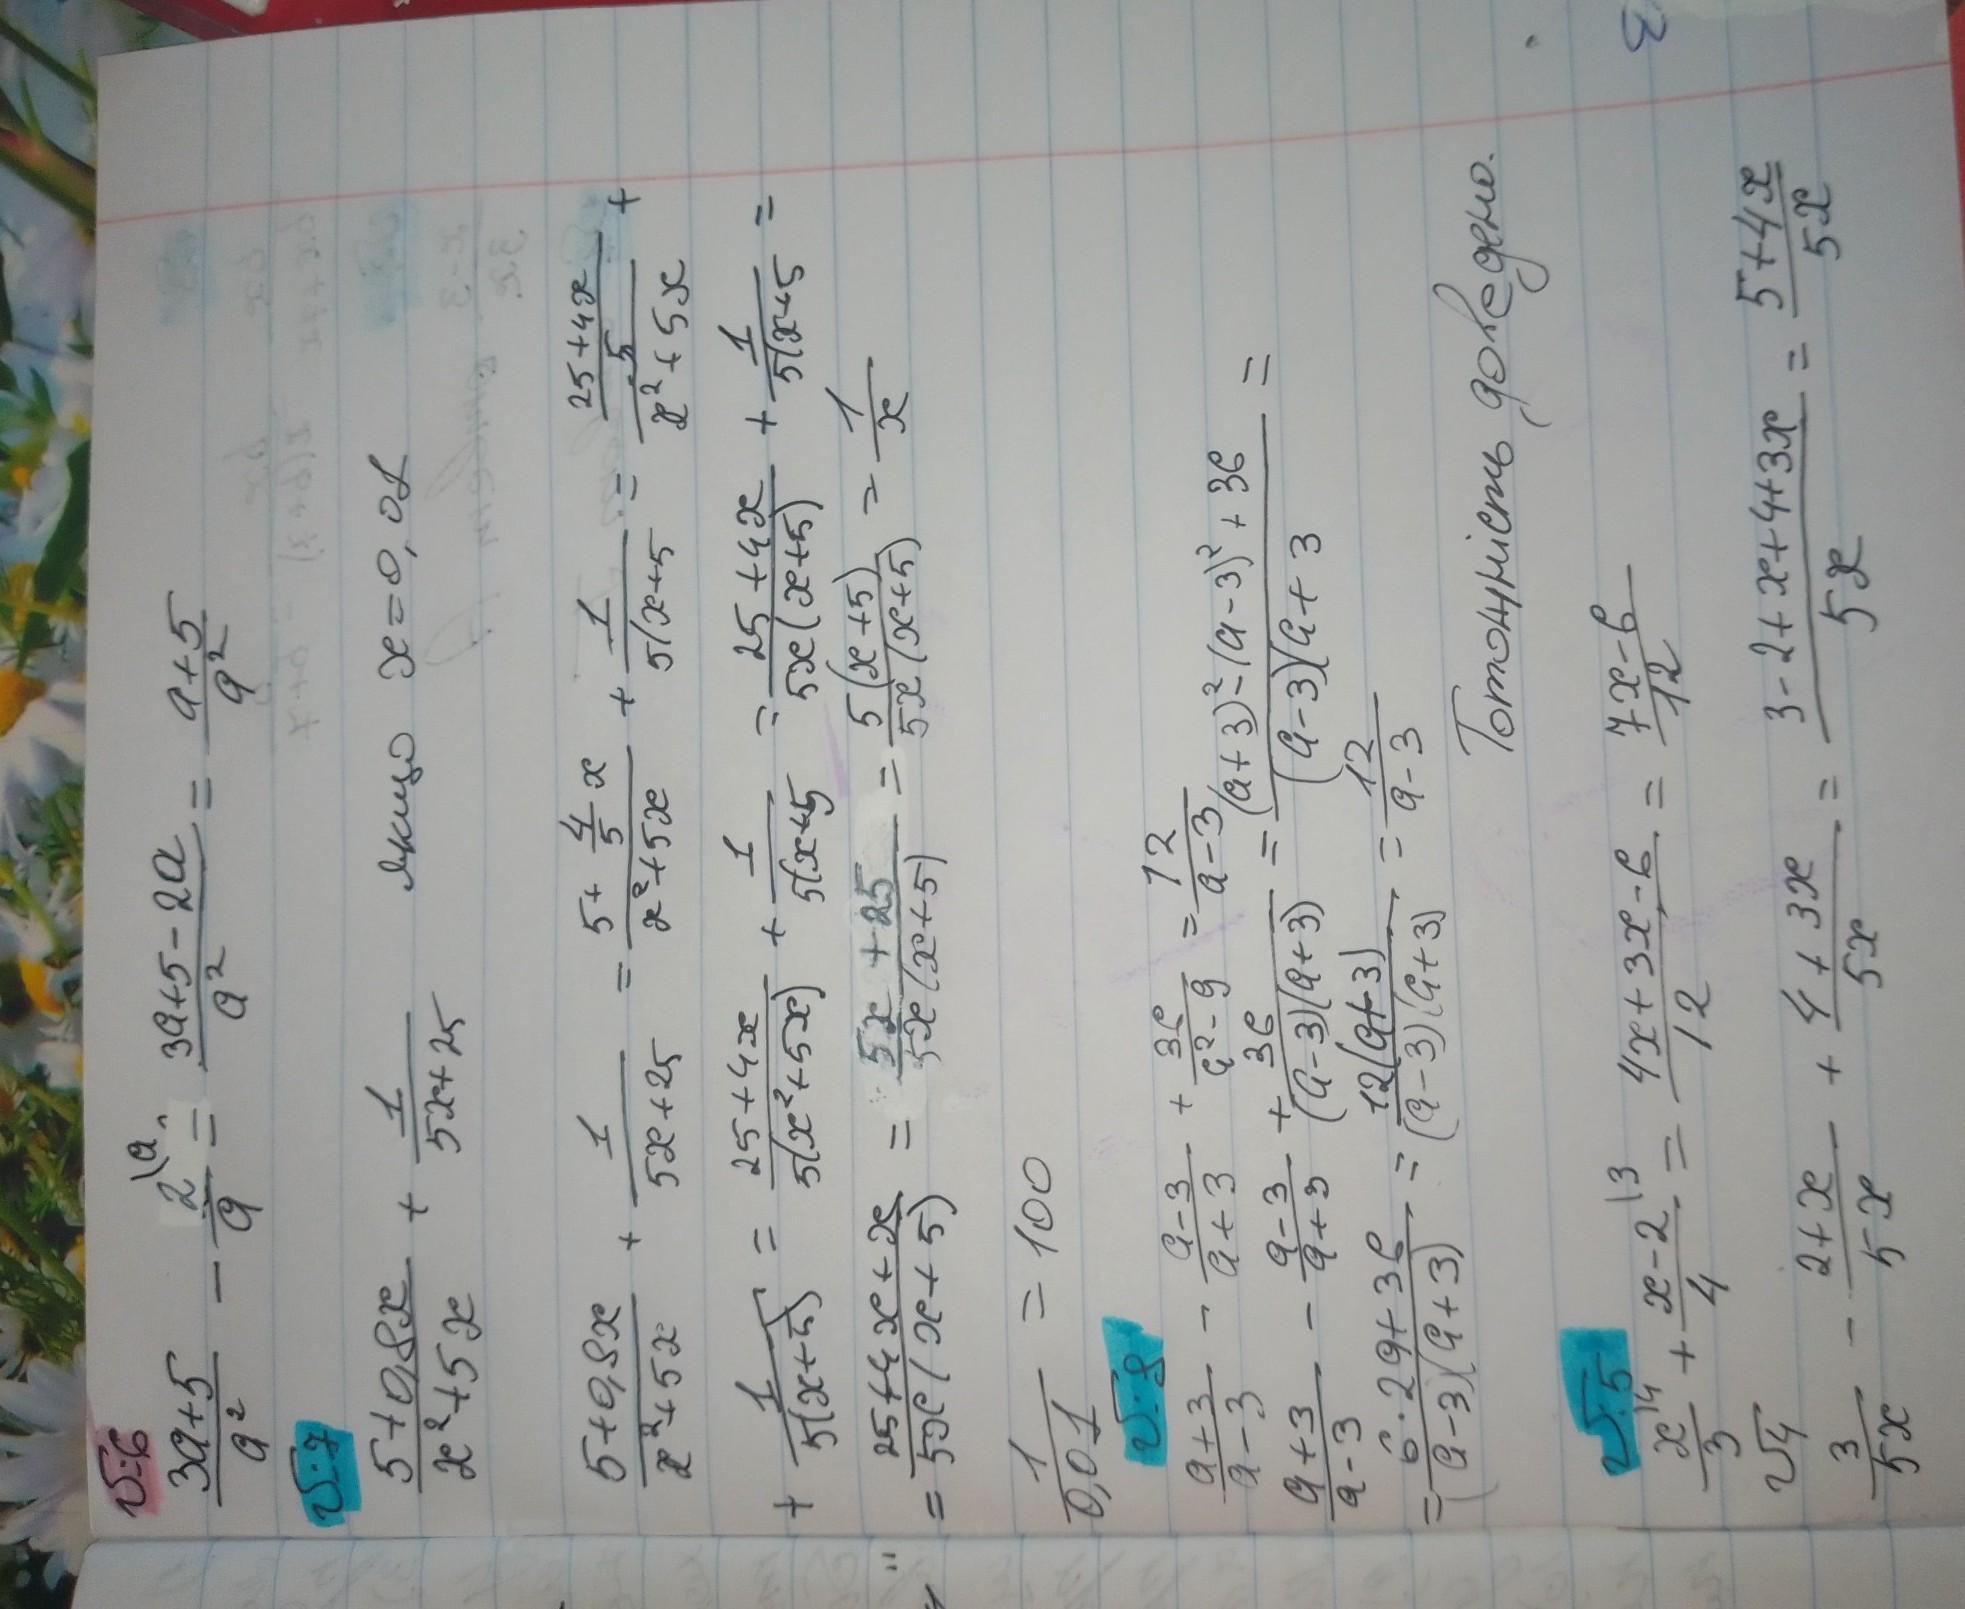 №6
(3a+5)/a² − 2\ᵃ/a = (3a+5−2a)/a² = (a+5)/a²
№7
(5+0,8x)/(x²+5x) + 1/(5x+25) якщо x=0,01
(5+0,8x)/(x²+5x) + 1/(5x+25) = (5+4/5 x)/(x²+5x) + 1/(5(x+5) = ((25+4x)/5)/(x²+5x) +
+ 1/(5(x+5) = (25+4x)/(5(x²+5x) + 1/(5(x+5) = (25+4x)/(5x(x+5)) + 1/(5(x+5) =
= (25+4x+x)/(5x(x+5) = (5x+25)/(5x(x+5) = (5(x+5))/(5x(x+5)) = 1/x
1/0,01 = 100
№8
(a+3)/(a−3) − (a−3)/(a+3) + 36/(a²−9) = 12/(a−3)
(a+3)/(a−3) − (a−3)/(a+3) + 36/((a−3)(a+3)) = ((a+3)²−(a−3)²+36)/((a−3)(a+3) =
= (6·2a+36)/((a−3)(a+3)) = (12(a+3))/((a−3)(a+3)) = 12/(a−3)
Тотожність доведено.
№5
x\⁴/3 + (x−2)\³/4 = (4x+3x−6)/12 = (7x−6)/12
№4
3/5x − (2+x)/5x + (4+3x)/5x = (3−2+x+4+3x)/5x = (5+4x)/5x